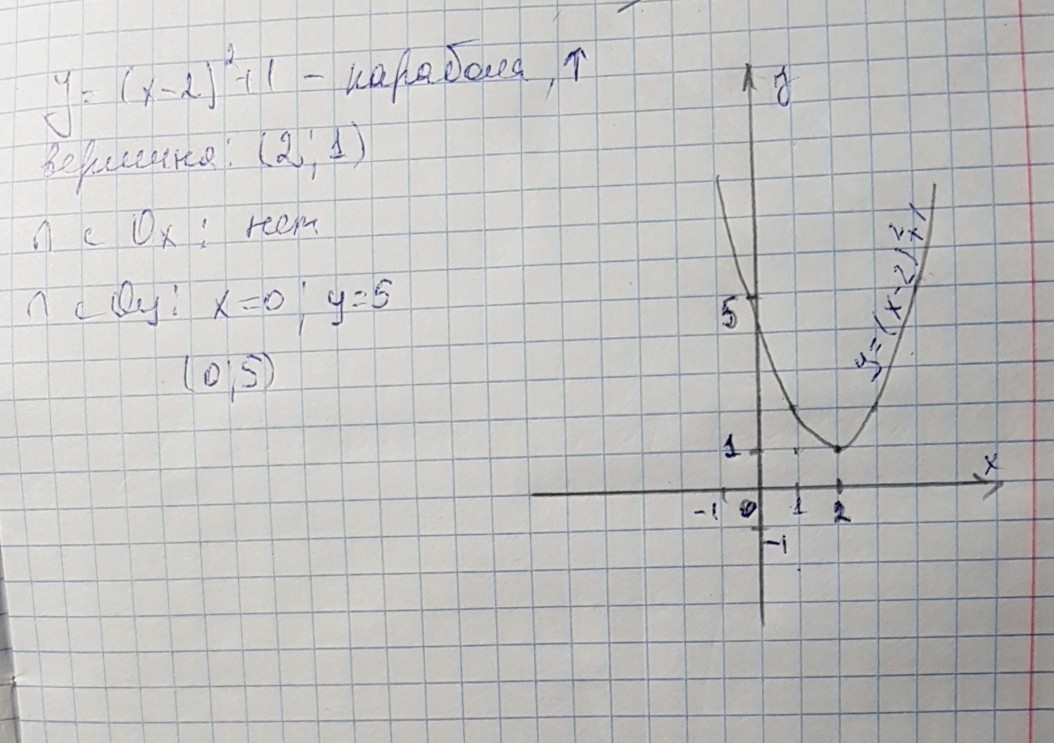 y = (x-2)²+1 - парабола, ↑
вершина: (2; 1)
∩ с Ox: нет
∩ с Oy: x=0; y=5
(0;5)
y
y=(x-2)²+1
5
1
x
-1 0 1 2
-1